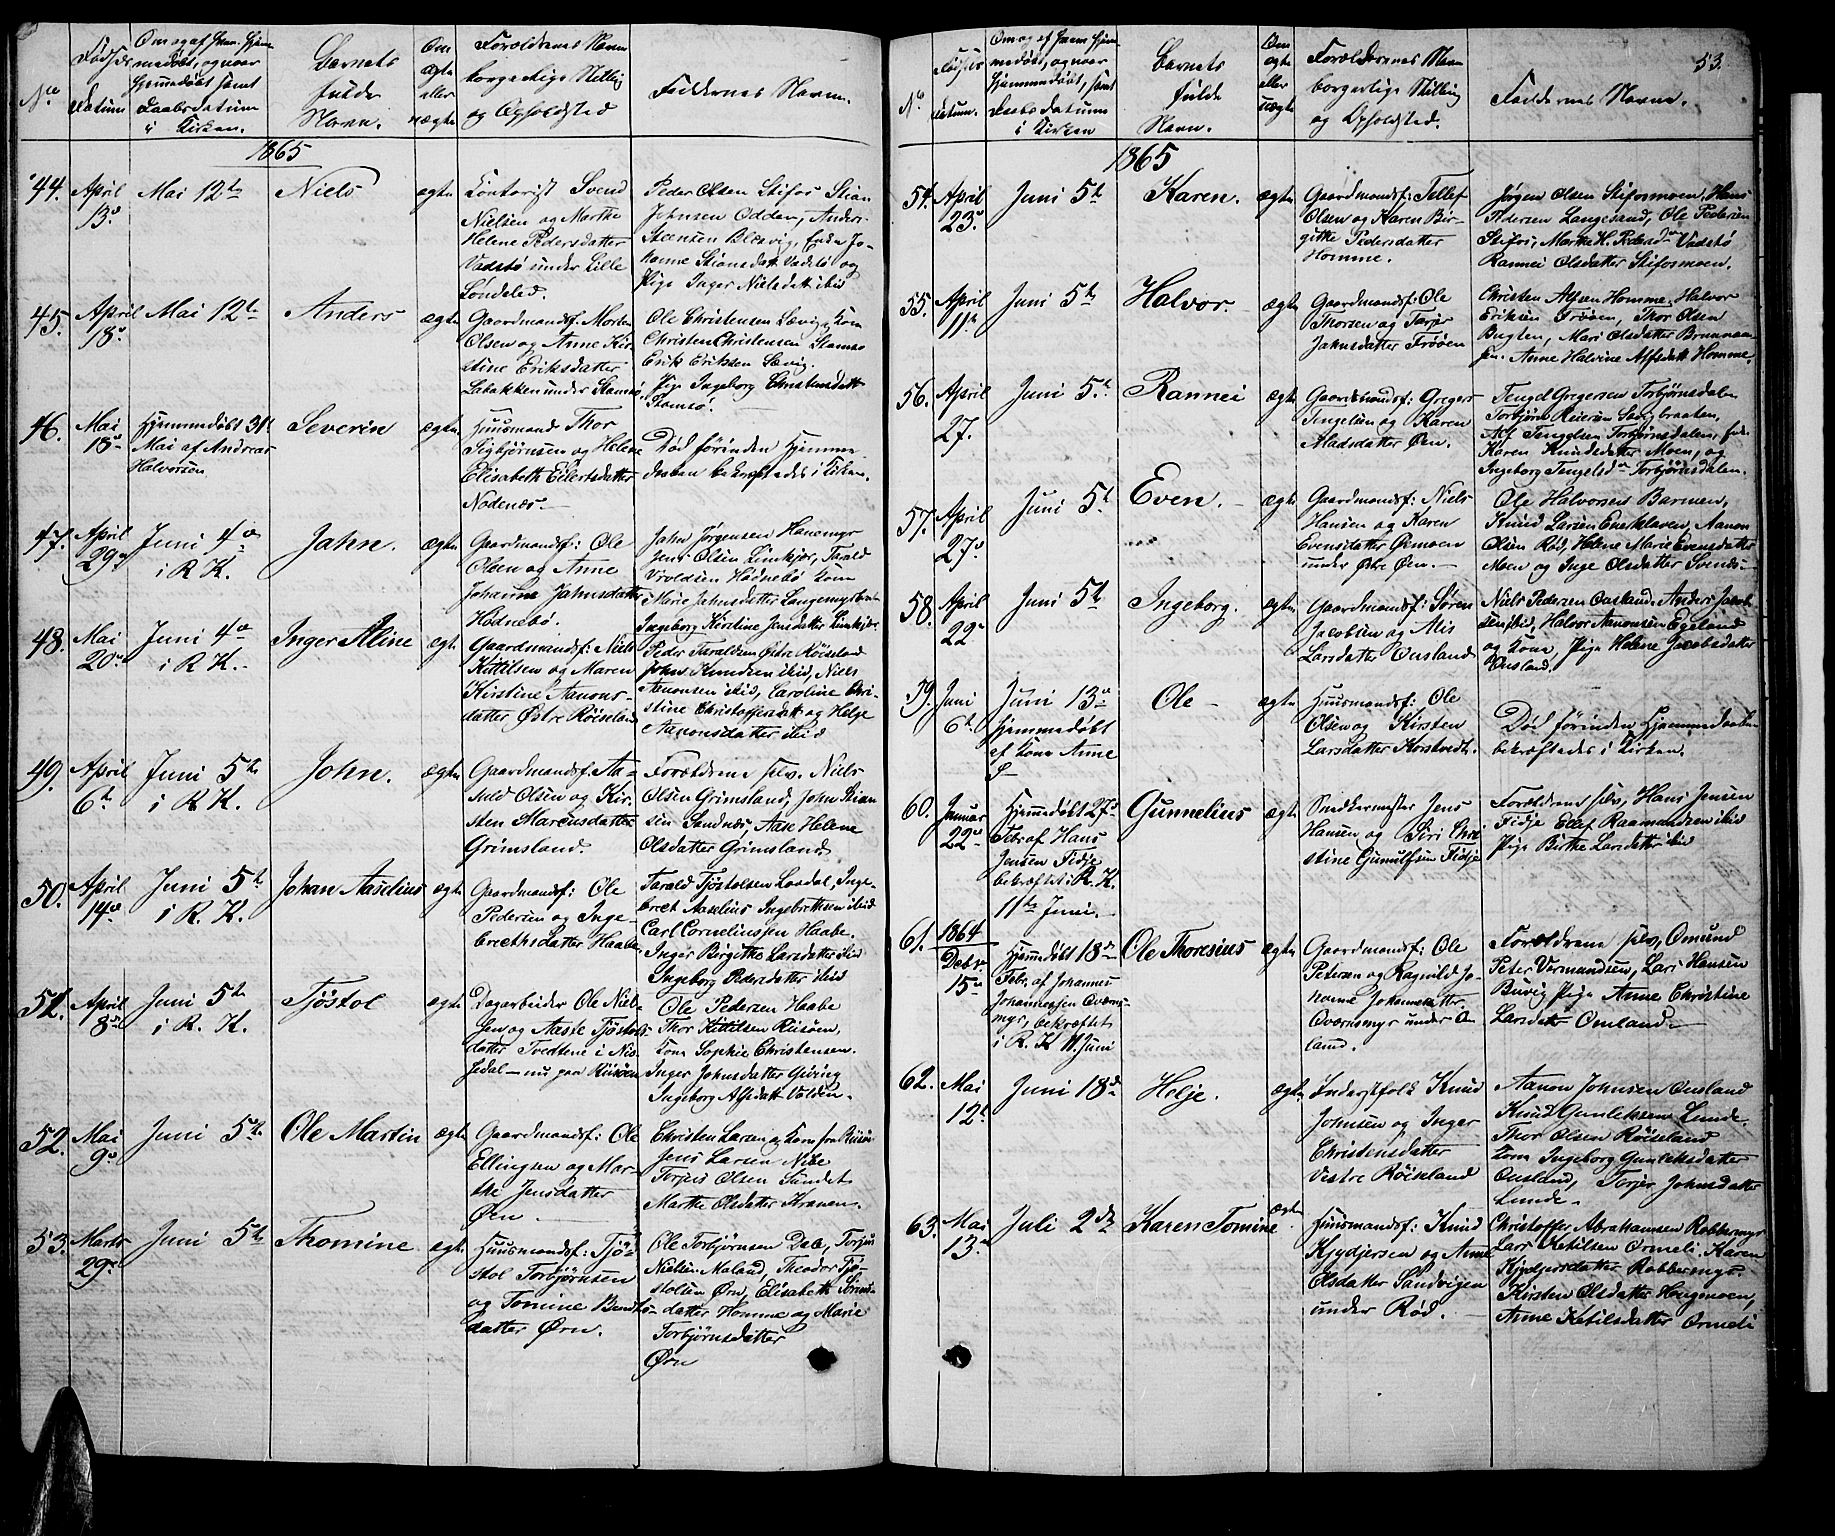 No
Fødsels
Datum
Om og af hvem Hjem-
medøbt, og naar
Hjemmedøbt samt
Daabsdatum
i Kirken.
Barnets
fulde
Navn.
Om
ægte
eller
uægte
Forældrenes Navn
borgerlige Stilling
og Opholdsted
Faddernes Navn.
1865
44. April
13de
Mai 12te
Niels
ægte
Kontorist Svend
Nielsen og Marthe
Helene Pedersdatter
Vadstø under Lille
Søndeled.
Peder Olsen Stifos, Stian
Johnsen Odden, Anders
Steensen Blesvig, Enke Jo-
hanne Stiansdatt. Vadstø og
Pige Inger Nielsdatt. ibid
45. April
18de
Mai 12te
Anders
ægte
Gaardmandsf: Morten
Olsen og Anne Kir-
stine Eriksdatter
Labakken under Stamsø
Ole Christensen Løvig, Kone
Christen Christensen Stamsø
Erik Eriksen Løvig.
Pige Ingeborg Christensdatt.
Stamsø.
46. Mai
18de
Hjemmedøbt 31te
Mai af Andreas
Halvorsen
Severin
ægte
Huusmand Thor
Sigbjørnsen og Helene
Elisabeth Eilertsdatter
Nodenæs.
Død førinden Hjemme-
daaben bekræftedes i Kirken.
47. April
29de
Juni 4de
i R. K.
Jahn.
ægte
Gaardmandsf: Ole
Olsen og Anne
Johanne Jahnsdatter
Hødnebø.
Jahn Jørgensen Hanemyr
Jens Olsen Limkjær, Tarald
Vivoldsen Hødnebø Kone
Marie Jahnsdatter Langemyr
Ingeborg Kirstine Jensdatter Limkjær
48. Mai
20de
Juni 4de
i R. K.
Inger Aline
ægte
Gaardmandsf: Niels
Kittilsen og Maren
Kirstine Aanons-
datter Østre Røiseland
Peder Taraldsen Østre Røiseland
John Knudsen ibid, Niels
Aanonsen ibid, Caroline Chri-
stine Christoffersdatt. og Helge
Aanonsdatter ibid
49. April
6te
Juni 5te
i R. K.
John.
ægte
Gaardmandsf: Aa-
suld Olsen og Kir-
sten Marcusdatter
Grimsland.
Forældrene selv. Niels
Olsen Grimsland, John Stian-
sen Sandnæs, Aase Helene
Olsdatter Grimsland
50. April
14de
Juni 5te
i R. K.
Johan Aaselius
ægte
Gaardmandsf: Ole
Pedersen og Inge-
brethsdatter Haabe
Tarald Tjøstolsen Losdal, Inge-
bret Aaselius Ingebrethsen ibid
Carl Corneliussen Haabe.
Inger Birgithe Larsdatter ibid
Ingeborg Pedersdatter ibid
51. April
8de
Juni 5te
i R. K.
Tjøstol
ægte
Dagarbeider Ole Niel-
sen og Aasse Tjøstols-
datter Tvedtene i Nis-
sedal – nu paa Risøen
Ole Pedersen Haabe
Thor Kittilsen Risøen,
Kone Sophie Christensen.
Inger Johnsdatter Gjeving
Ingeborg Alfsdatt. Volden
52. Mai
9de
Juni 5te
Ole Martin
ægte
Gaardmandsf: Ole
Ellingsen og Mar-
the Jensdatter
Øen
Christen Larsen og Kone fra Risøen
Jens Larsen Nibe
Torjus Olsen Sundet
Marthe Olsdatter Kranen
53. Marts
29de
Juni 5te
Thomine
ægte
Huusmandsf: Tjø-
stol Torbjørnsen
og Tomine Bendts-
datter Ørn.
Ole Torbjørnsen Dale, Torjus
Nielsen Moland, Theodor Tjø-
stolsen Ørn, Elisabeth Sørens-
datter Homme og Marie
Torbjørnsdatter
Ørn
53.
No
Fødsels
datum.
Om og af hvem Hjem-
medøbt, og naar
Hjemmedøbt, samt
Daabsdatum
i Kirken
Barnets
fulde
Navn.
Om
ægte
eller
uægte
Forældrenes Navn
borgerlige Stilling
og Opholdsted.
Faddernes Navn.
1865
54. April
23de
Juni 5te
Karen.
ægte
Gaardmandsf: Tellef
Olsen og Karen Bir-
githe Pedersdatter
Homme.
Jørgen Olsen Stifosmoen, Hans
Pedersen Langesand, Ole Pedersen
Stifos, Marthe H. Pedersdr Vadstø
Rannei Olsdatter Stifosmoen.
55. April
11te
Juni 5te
Halvor.
ægte
Gaardmandsf: Ole
Thorsen og Torjer
Jahnsdatter Trøen
Christen Alfsen Homme, Halvor
Eriksen Trøen, Thor Olsen
Bugten, Mari Olsdatter Brunaa-
sen, Anne Halvine Alfsdatt. Homme.
56. April
27.
Juni 5te
Rannei
ægte
Gaardmandsf: Gregers
Tengelsen og Karen
Madsdatter Øen.
Tengel Gregersen Torbjørnsdalen
Torbjørn Reiersen Langbraaten,
Alf Tengelsen Torbjørnsdalen,
Karen Knudsdatter Moen, og
Ingeborg Tengelsdr Torbjørnsdalen.
57. April
27de
Juni 5te
Even.
ægte
Gaardmandsf: Niels
Hansen og Karen
Evensdatter Øemoen
under Østre Øen.
Ole Halvorsen Barmen,
Knud Larsen Eneklaven, Aanon
Olsen Rød, Helene Marie Evensdatter
Moen og Inge Olsdatter Svends-
58. April
22de
Juni 5te
Ingeborg.
ægte
Gaardmandsf: Søren
Jacobsen og Alis
Larsdatter Ousland
Niels Pedersen Ousland, Anders Jacob-
sen ibid, Halvor Aanonsen Egeland
og Kone, Pige Helene Jacobsdatter
Ousland.
59. Juni
6te
Juni 13de
Hjemmedøbt
af Kone Anne
Ø
Ole
ægte
Huusmandsf: Ole
Olsen og Kirsten
Larsdatter Korstvedt.
Død førinden Hjemmedaaben
bekræftedes i Kirken.
60. Januar
22de
Hjemmedøbt 27de
Febr af Hans
Jensen Fidje
bekræftet i R. K.
11te Juni.
Gunnelius
ægte
Snedkermester Jens
Hansen og Siri Chri-
stine Gunulfsen Fidje
Forældrene selv, Hans Jensen
Fidje Ellef Raamundsen ibid
Pige Birthe Larsdatter ibid
61. 1864
Debr.
15de
Hjemmedøbt 18de
Febr. af Johannes
Johannessen Qværns-
myr, bekræftet
i R. K 11. Juni
Ole Thoresius
ægte
Gaardmandsf: Ole
Petersen og Ragnild Jo-
hanne Johannesdatter
Qværnsmyr under O
land.
Forældrene selv, Omund
Peter Vermundsen, Lars Hansen
Buvig Pige Anne Christine
Larsdatter Omland.
62. Mai
12te
Juni 18de
Helje.
ægte
Inderstfolk Knud
Johnsen og Inger
Christensdatter
Vestre Røiseland
Aanon Johnsen Ousland
Knud Gunleksen Lunde
Thor Olsen Røiseland
Kone Ingeborg Gunleksdatter
Ousland, Torjer Johnsdatter
Lunde
63. Mai
13de
Juli 2den
Karen Tomine
ægte
Huusmandsf: Knud
Kjydjersen og Anne
Olsdatter Sandvigen
under Rød.
Christoffer Abrahamsen Robbermyr
Lars Ketilsen Ormeli, Karen
Kjydjersdatter Robbermyr.
Kirsten Olsdatter Haugmoen,
Anne Ketilsdatter Ormeli